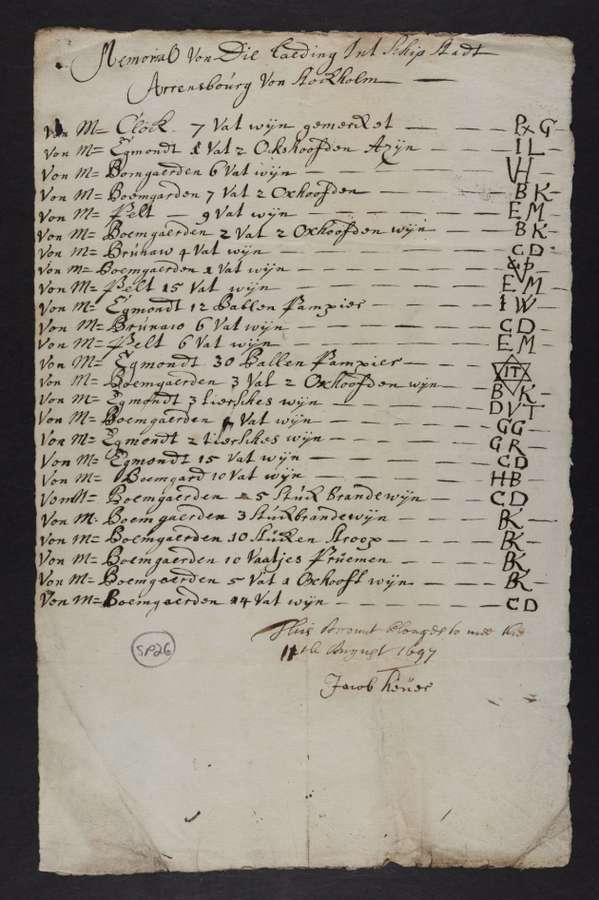 Memorial Von Die Lading Int Schip Stadt
Arrensbourg Von Stockholm —
Von M= Clock. 7 Vat wijn gemercket — — — P x G
Von M= Egmondt 1 Vat 2 Ockshoofden Azijn — — — I L
Von M= Bomgaerden 6 Vat wijn — — — — VH
Von M= Boemgarden 7 Vat 2 Oxhoofden — — — B K
Von M= Pelt — 9 Vat wijn — — — — E M
Von M= Boemgaerden 2 Vat 2 Oxhoofden wijn — — B K
Von M= Brúnaw 4 Vat wijn — — — — C D
Von M= Boemgaerden 1 Vat wijn — — — —
Von M= Pelt 15 Vat wijn — — — — E M
Von M= Egmondt 12 Ballen Pampier — — — I W
Von M= Brúnaw 6 Vat wijn — — — — C D
Von M= Pelt 6 Vat wijn — — — — E M
Von M= Egmondt 30 Ballen Pampier — — — IT
Von M= Boemgaerden 3 Vat 2 Oxhoofden wijn — — B K
Von M= Egmondt 3 tiersches wijn — — — D V T
Von M= Boemgaerden Vat wijn — — — — G G
Von M= Egmondt 2 tiersches wijn — — — G R
Von M= Egmondt 15 Vat wijn — — — — C D
Von M= Boemgard 10 Vat wijn — — — — H B
Von M= Boemgaerden 5 Stúck Brandewijn — — — C D
Von M= Boemgaerden 3 Stúck brandewijn — — — BK
Von M= Boemgaerden 10 Stúcken Stroop — — — BK
Von M= Boemgaerden 10 Vaatjes Prúemen — — — BK
Von M= Boemgaerden 5 Vat 1 Oxhooft wijn — — — BK
Von M= Boemgaerden 14 Vat wijn — — — — C D
This Account belonges to mee the
11th August 1697
Jacob
SP26